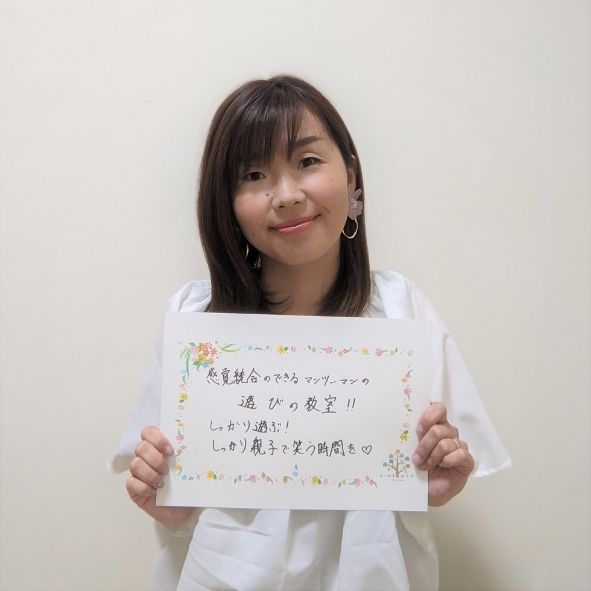 感覚統合のできるマンツーマンの
遊びの教室!!
しっかり遊ぶ!
しっかり親子で笑う時間を♡